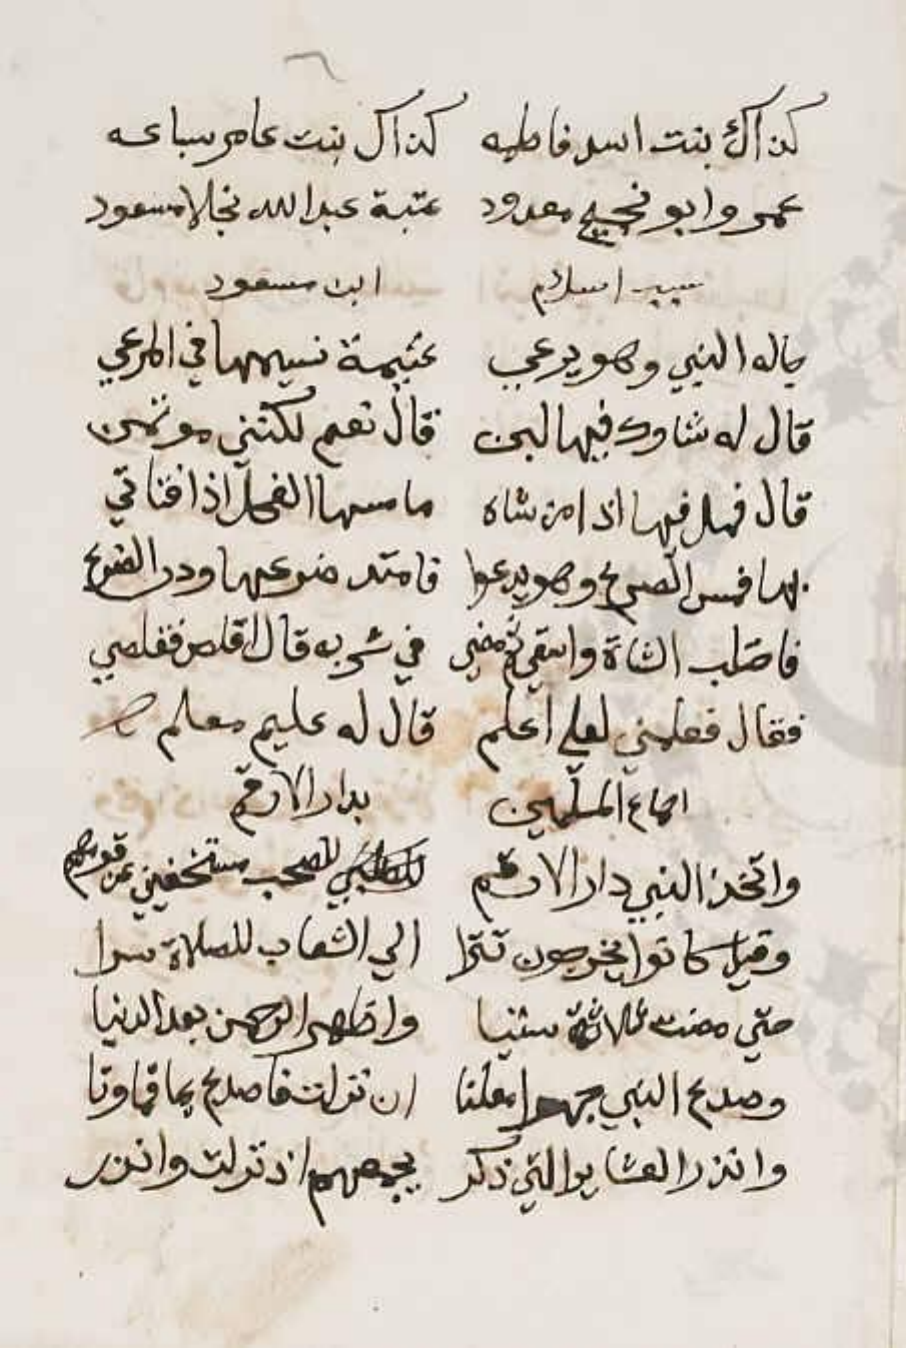 كذاك بنت اسد فاطمه كذاك بنت عامر ضباعه
عمرو ابو نجيح معدود عتبة عبدالله نجلا مسعود
سبب اسلام ابن مسعود
جاله النبي وهو يرعي غنيمة نسيمها في المرعي
قال له شاوك فيها لبن قال نعم لكنني موتمن
قال فهل فيها اذا من شاة ما مسها الفحل اذا فتاتي
بها فمس الضرع وهو يدعوا فامتد ودر الضرع
فاحتلب الشاة واسقي ثم مضي في شربه قال اقلص فقلص
فقال فعلمني لعلي اعلم قال له عليم معلم
اجماع المسلمين بدار الارقم
واتخذ النبي دار الارقم للصحب مستخفين عن قومهم
وقيل كانوا يخرجون تترا الي الشعاب للصلاة سرا
حتي مضت ثلاثة سنينا واظهر الرحمن بعد الدينا
وصدع النبي جهرا معلنا ان نزلت فاصدع بما
وانذر العشاير التي ذكر بجمعهم اذ نزلت وانذر